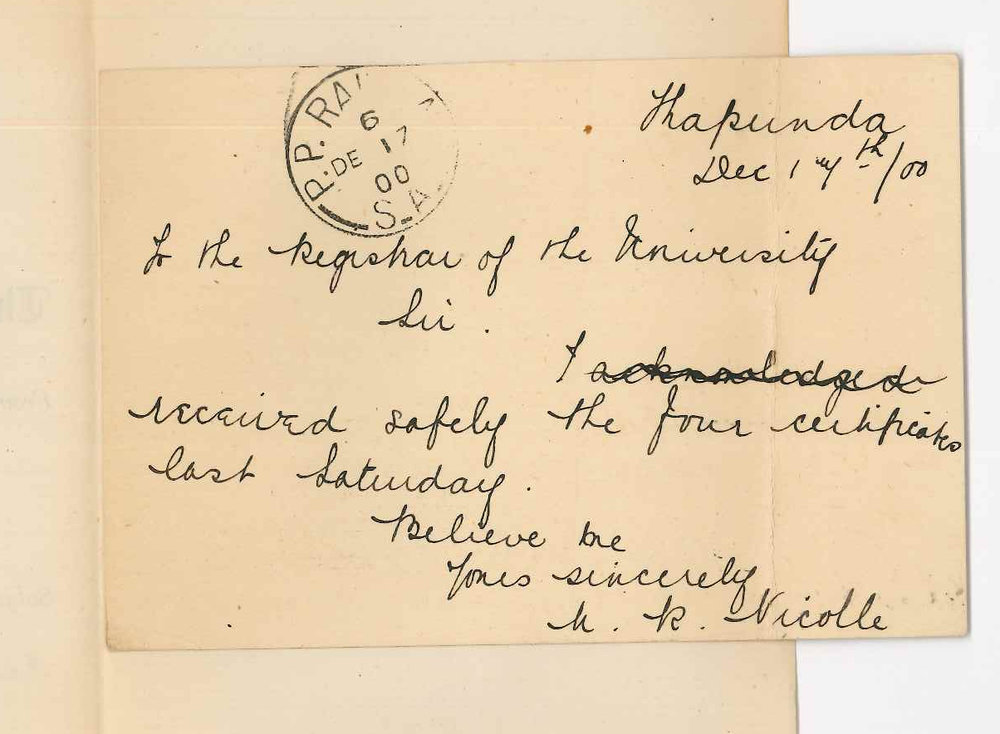 P.P. RAI
6
DE 17
00
S.A.
Kapunda
Dec 17th/00
To the Registrar of the University
Sir.
I acknowledged
received safely the four certificates
last Saturday.
Believe me
Yours sincerely
M. K. Nicolle